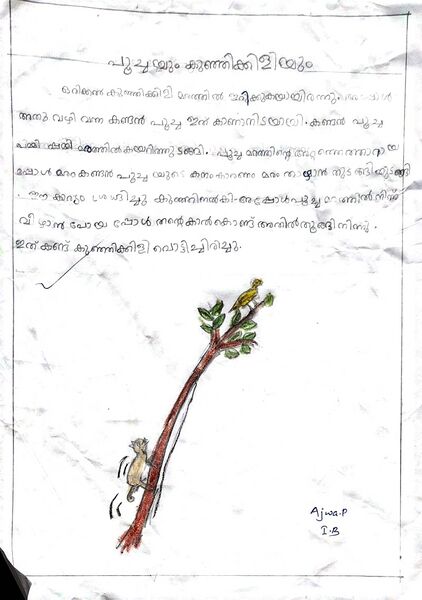 പൂച്ചയും കുഞ്ഞിക്കിളിയും
ഒരിക്കൽ കുഞ്ഞിക്കിളി മരത്തിൽ ഇരിക്കുകയായിരുന്നു.
അതു വഴി വന്ന കണ്ടൻ പൂച്ച ഇത് കാണാനിടയായി. കണ്ടൻ പൂച്ച
പമ്മി പമ്മി മരത്തിൽ കയറിത്തുടങ്ങി. പൂച്ച മരത്തിന്റെ
മരം കണ്ടൻ പൂച്ച യുടെ കനം കാരണം മരം താഴാൻ തുടങ്ങി
ഈ കാര്യം ശ്രദ്ധിച്ചു കുഞ്ഞിക്കിളി. അപ്പോൾ പൂച്ച മരത്തിൽ നിന്ന്
വീഴാൻ പോയ പ്പോൾ തന്റെ കാൽ കൊണ്ട് അതിൽ തൂങ്ങി നിന്നു.
ഇത് കണ്ട് കുഞ്ഞിക്കിളി പൊട്ടിച്ചിരിച്ചു.
Ajwa.P
I.B